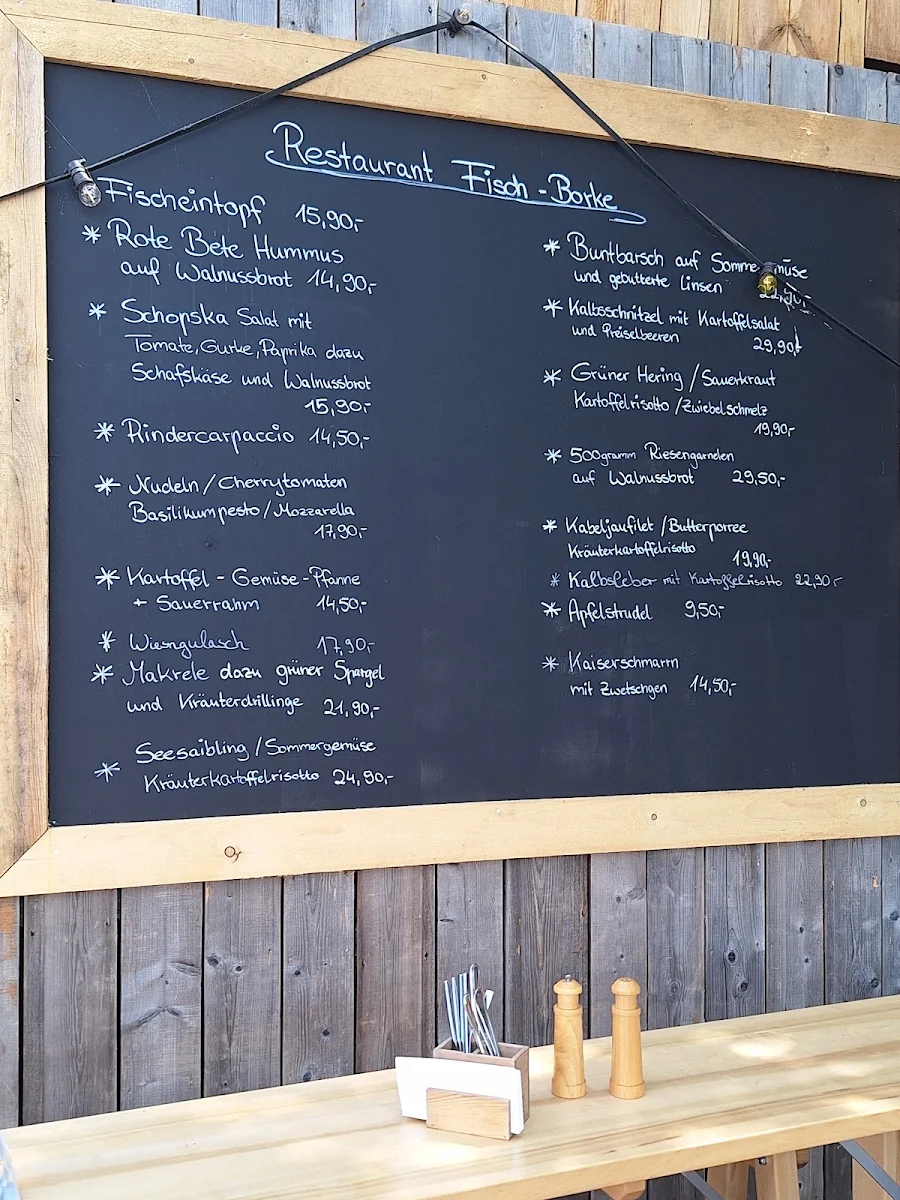 Restaurant Fisch-Borke
Fischeintopf 15,90,-
* Rote Bete Hummus
auf Walnussbrot 14,90,-
* Schopska Salat mit
Tomate, Gurke, Paprika dazu
Schafskäse und Walnussbrot
15,90,-
* Rindercarpaccio 14,50,-
* Nudeln / Cherrytomaten
Basilikumpesto / Mozzarella
17,90,-
* Kartoffel - Gemüse - Pfanne
+ Sauerrahm 14,50,-
* 17,90,-
* Makrele dazu grüner Spargel
und Kräuterdrillinge 21,90,-
Seesaibling / Sommergemüse
* Kräuterkartoffelrisotto 24,90,-
* Buntbarsch auf
und gebutterte Linsen
* Kalbsschnitzel mit Kartoffelsalat
und Preiselbeeren
29,90,-
* Grüner Hering / Sauerkraut
Kartoffelrisotto / Zwiebelschmelz
19,90,-
* 500gramm Riesengarnelen
auf Walnussbrot 29,50,-
* Kabeljaufilet / Butterporree
Kräuterkartoffelrisotto
19,90,-
* Kalbsleber mit Kartoffelrisotto 22,90,-
* Apfelstrudel 9,50,-
* Kaiserschmarrn
mit Zwetschgen 14,50,-